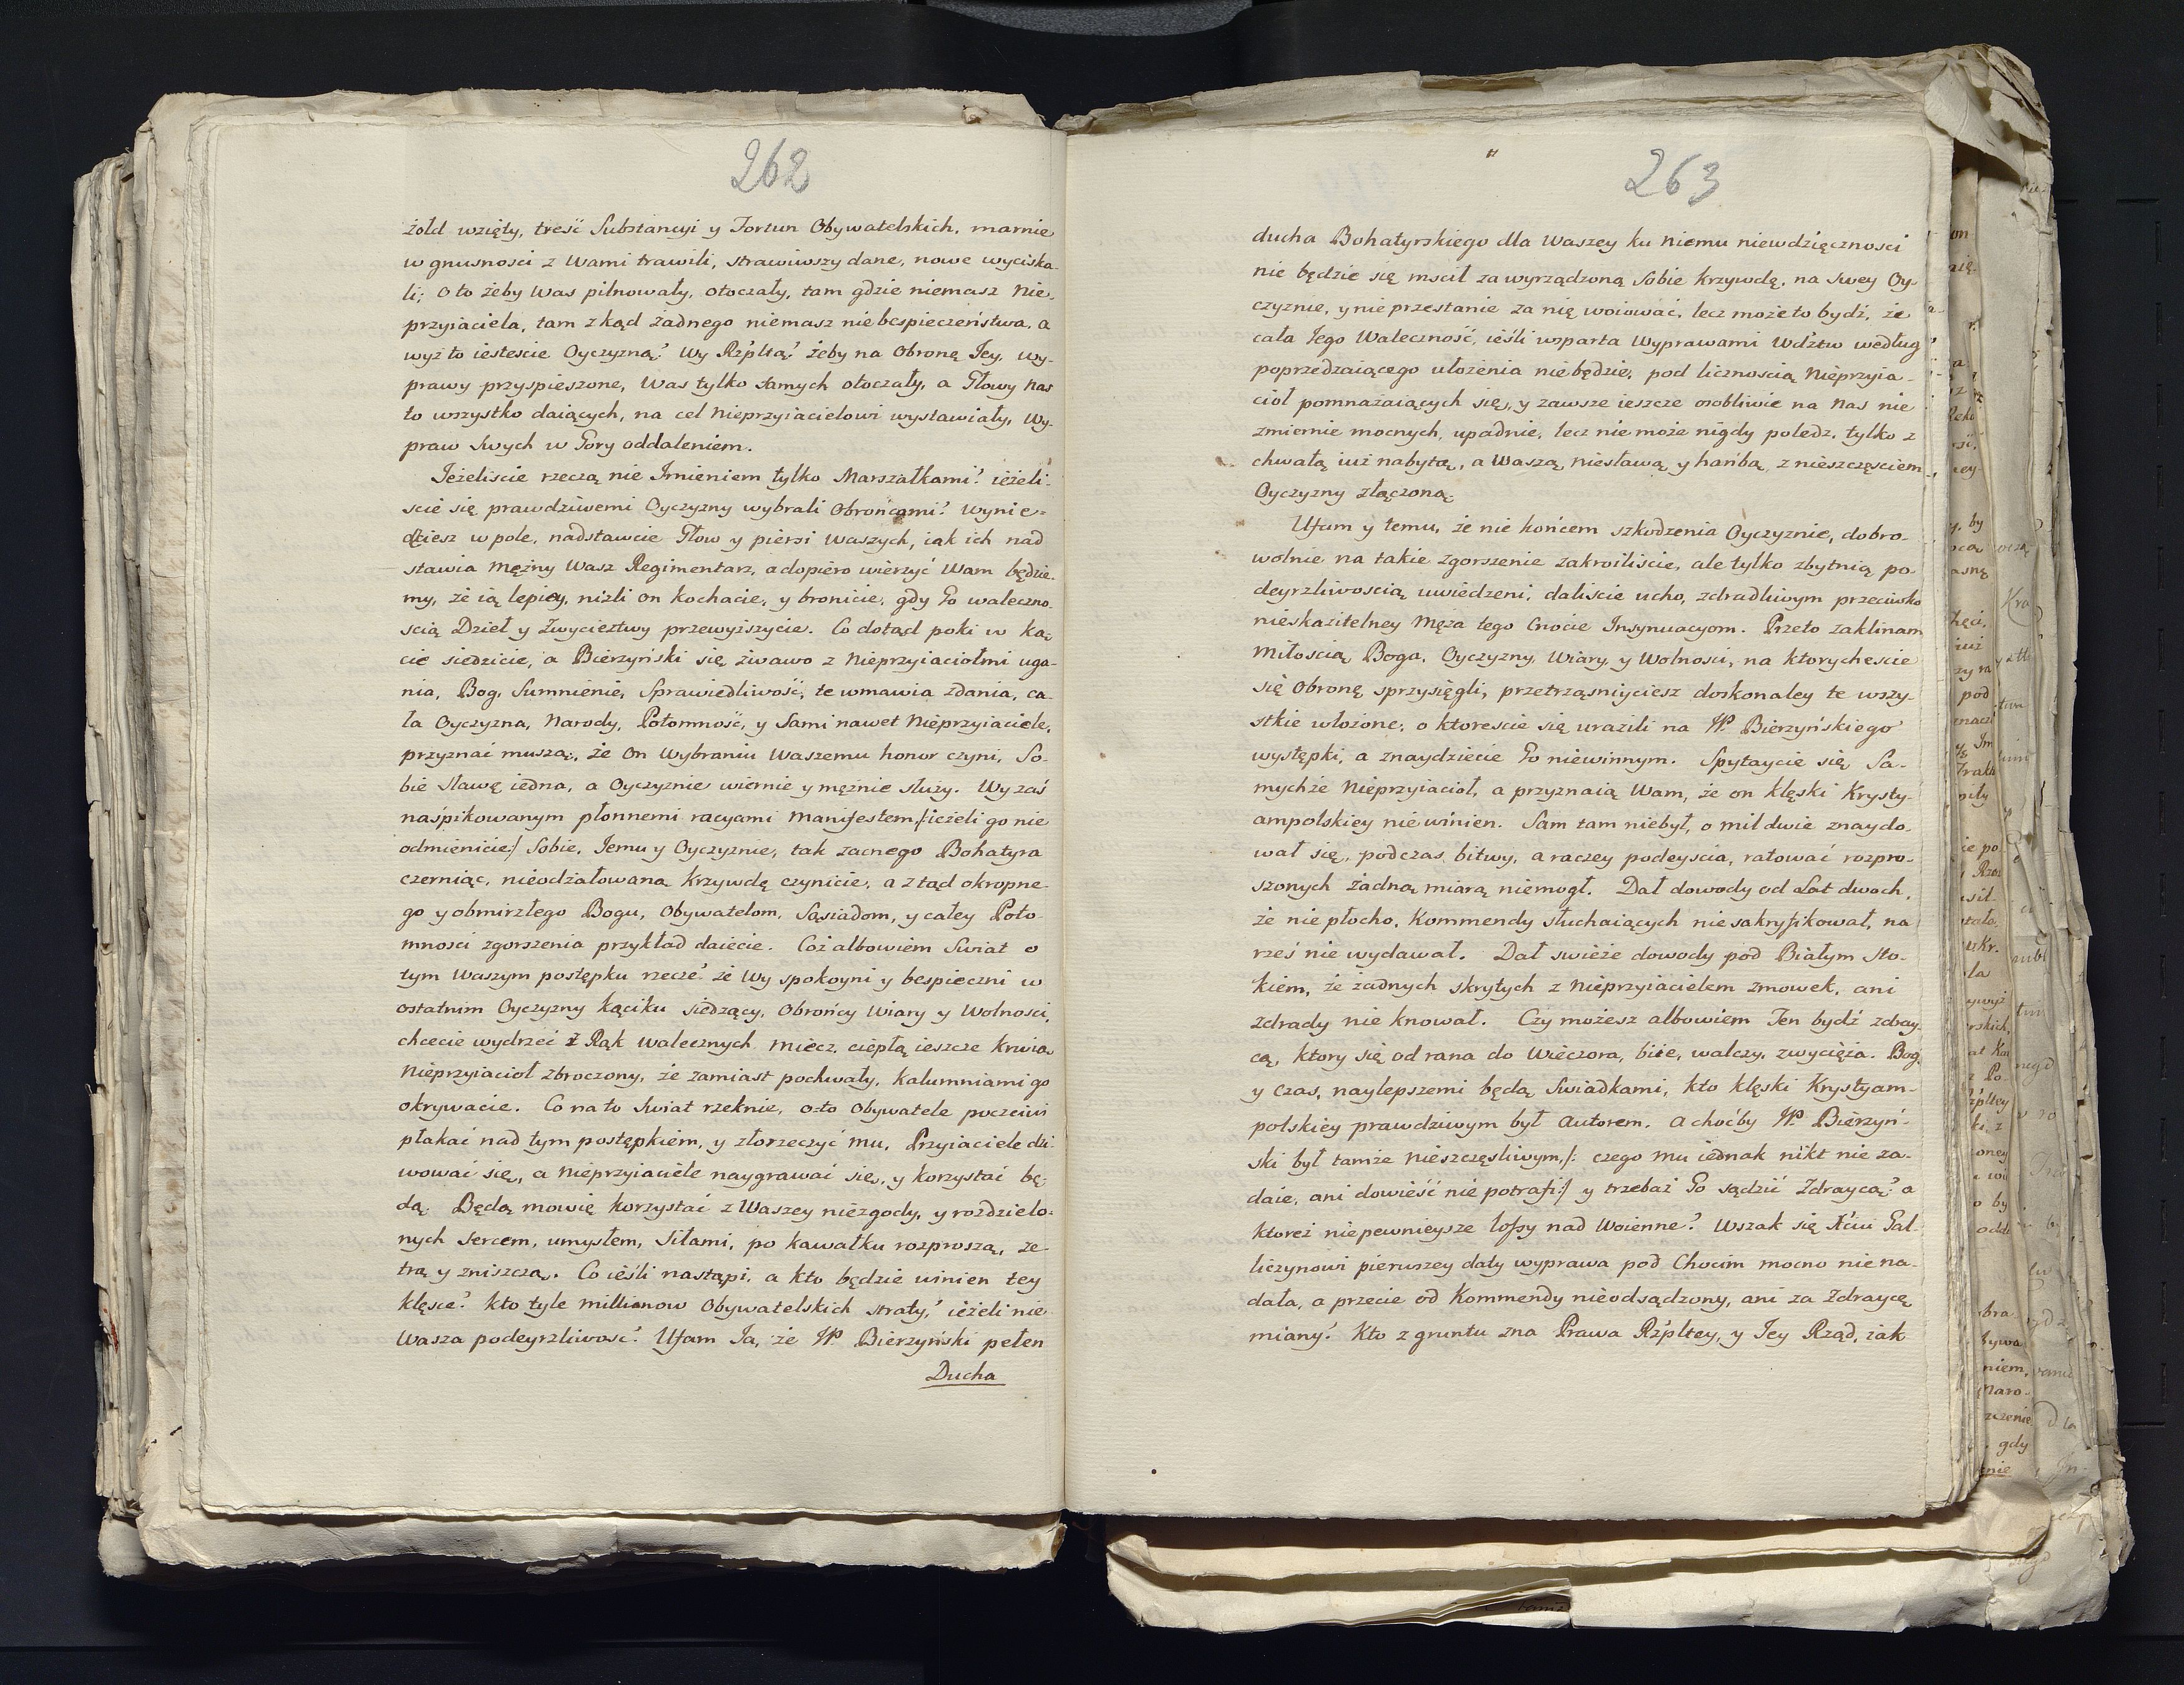 262
żołd wzięty, treść Substancyi y Fortun Obywatelskich, marnie
w gnusnosci z Wami trawili, strawiwszy dane, nowe wyciska-
li; Oto żeby Was pilnowały, otoczały, tam gdzie niemasz Nie-
przyiaciela, tam zkąd żadnego niemasz niebespieczeństwa, a
wyż to iestescie Oyczyzną? Wy Rz'pltą? żeby na Obronę Jey, wy-
prawy przyspieszone, Was tylko samych otoczały, a Głowy nas
to wszystko daiących, na cel Nieprzyiacielowi wystawiały, Wy-
praw Swych w Gory oddaleniem.
Jeżeliscie rzeczą nie Imieniem tylko Marszałkami? ieżeli-
scie się prawdziwemi Oyczyzny wybrali Obrońcami? Wynie-
dziesz w pole, nadstawcie Głow y piersi Waszych, iak ich nad
stawia Mężny Wasz Regimentarz, a dopiero wierzyć Wam będzie-
my, że ią lepiey, niżli on kochacie, y bronicie, gdy Go waleczno-
scią Dzieł y Zwycieztwy przewyższycie. Co dotąd poki w ką-
cie siedzicie, a Bierzyński się żwawo z Nieprzyiaciołmi uga-
nia, Bog, Sumnienie, Sprawiedliwość, te wmawia zdania, ca-
ła Oyczyzna, Narody, Potomność, y Sami nawet Nieprzyiaciele,
przyznać muszą, że On Wybraniu Waszemu honor czyni, So-
bie sławę iedna, a Oyczyznie wiernie y mężnie służy. Wy zaś
naśpikowanym płonnemi racyami Manifestem /:ieżeli go nie
odmienicie:/ Sobie, Jemu y Oyczyznie, tak zacnego Bohatyra
czerniąc, nieodżałowaną krzywdę czynicie, a ztąd okropne-
go y obmirzłego Bogu, Obywatelom, Sąsiadom, y całey Poto-
mnosci zgorszenia przykład daiecie. Coż albowiem Swiat o
tym Waszym postępku rzecze? że Wy spokoyni y bespieczni w
ostatnim Oyczyzny kąciku siedzący, Obrońcy Wiary y Wolnosci,
chcecie wydrzeć z Rąk walecznych Miecz, ciepłą ieszcze krwią
Nieprzyiacioł zbroczony, że zamiast pochwały, Kalumniami go
okrywacie. Co na to Swiat rzeknie, oto Obywatele poczciwi
płakać nad tym postępkiem, y złorzeczyć mu, Przyiaciele dzi-
wować się, a Nieprzyiaciele naygrawać się, y korzystać bę-
dą. Będą mowię korzystać z Waszey niezgody, y rozdzielo-
nych sercem, umysłem, Siłami, po kawałku rozproszą, ze-
trą y zniszczą. Co ieśli nastąpi, a kto będzie winien tey
klęsce? Kto tyle millionow Obywatelskich straty? ieżeli nie
Wasza podeyrzliwosć? Ufam Ja, że JP. Bierzyński pełen
Ducha
263
ducha Bohatyrskiego dla Waszey ku niemu niewdzięcznosci
nie będzie się mscił za wyrządzoną Sobie krzywdę, na Swey Oy-
czyznie, y nie przestanie za nię woiować, lecz może to bydź, że
cała Jego Waleczność, ieśli wsparta Wyprawami Wdztw według
poprzedzaiącego ułożenia niebędzie, pod licznoscią Nieprzyia-
cioł pomnażaiących się, y zawsze ieszcze osobliwie na Nas nie
zmiernie mocnych, upadnie, lecz nie może nigdy poledz, tylko z
chwałą iuż nabytą, a Waszą niesławą y hańbą, z nieszczęsciem
Oyczyzny złączoną.
Ufam y temu, że nie końcem szkodzenia Oyczyznie, dobro-
wolnie na takie zgorszenie zakroiliscie, ale tylko zbytnią po-
deyrzliwoscią uwiedzeni, daliscie ucho, zdradliwym przeciwko
nieskazitelney Męża tego Cnocie Insynuacyom. Przeto zaklinam
Miłoscią Boga, Oyczyzny, Wiary, y Wolnosci, na ktorychescie
się Obronę sprzysięgli, przetrząsniyciesz doskonaley te wszy-
stkie włożone, o ktorescie się urazili na JP. Bierzyńskiego
występki, a znaydziecie Go niewinnym. Spytaycie się Sa-
mychże Nieprzyiacioł, a przyznaią Wam, że on klęski Krysty-
ampolskiey niewinien. Sam tam niebył, o mil dwie znaydo-
wał się, podczas bitwy, a raczey podeyscia, ratować rozpro-
szonych żadną miarą niemogł. Dał dowody od Lat dwoch,
że nie płocho, Kommendy słuchaiących nie sakryfikował, na
rześ nie wydawał. Dał swieże dowody pod Białym Sto-
kiem, że żadnych skrytych z Nieprzyiacielem zmowek, ani
zdrady nie knował. Czy możesz albowiem Ten bydź zdray-
cą, ktory się od rana do Wieczora, biie, walczy, zwycięża. Bog,
y Czas, naylepszemi będą Swiadkami, kto klęski Krystyam-
polskiey prawdziwym był Autorem. A choćby JP. Bierzyń-
ski był tamże nieszczęsliwym, /: czego mu iednak nikt nie za-
daie, ani dowieść nie potrafi:/ y trzebaż Go sądzić Zdraycą? a
ktoreż niepewnieysze lossy nad Woienne? Wszak się Xciu Gal-
liczynowi pierwszey daty wyprawa pod Chocim mocno nie na-
dała, a przecie od Kommendy nieodsądzony, ani za Zdraycę
miany? Kto z gruntu zna Prawa Rz'pltey, y Jey Rząd, iak